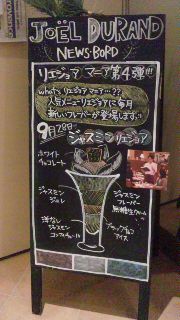 JOËL DURAND
NEWS·BORD
リエジョア マニア第4弾!!!
what's リエジョアマニア…??
人気メニューリエジョアに毎月
新しいフレーバーが登場します!!
9月28日~
ジャスミンリエジョア
ホワイト
チョコレート
ジャスミン
ジュレ
洋なし
ジャスミン
コンフィチュール
ジャスミン
フレーバー
無糖生クリーム
ブラックチョコ
アイス